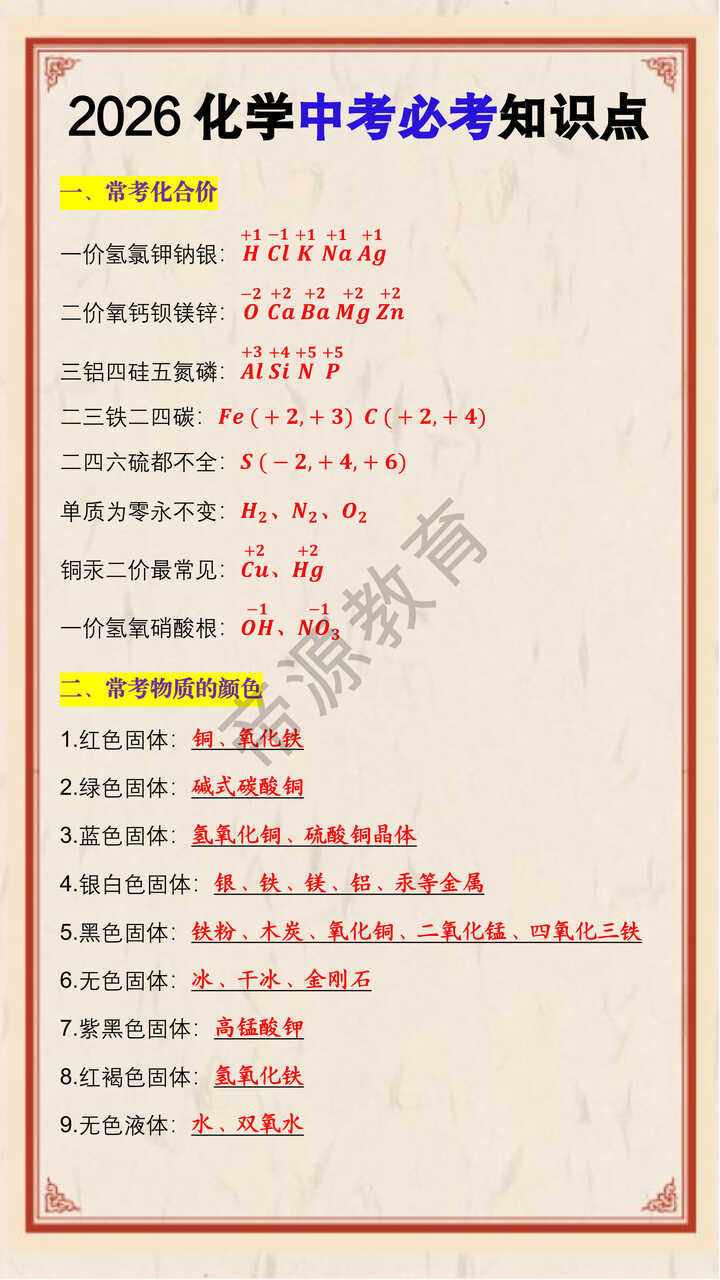 2026 化学中考必考知识点
一、常考化合价
+1 −1 +1 +1 +1
一价氢氯钾钠银：H Cl K Na Ag
−2 +2 +2 +2 +2
二价氧钙钡镁锌：O Ca Ba Mg Zn
+3 +4 +5 +5
三铝四硅五氮磷：Al Si N P
二三铁二四碳：Fe (+2,+3) C (+2,+4)
二四六硫都不全：S (−2,+4,+6)
单质为零永不变：H₂、N₂、O₂
+2 +2
铜汞二价最常见：Cu、Hg
−1 −1
一价氢氧硝酸根：OH、NO₃
二、常考物质的颜色
1.红色固体：铜、氧化铁
2.绿色固体：碱式碳酸铜
3.蓝色固体：氢氧化铜、硫酸铜晶体
4.银白色固体：银、铁、镁、铝、汞等金属
5.黑色固体：铁粉、木炭、氧化铜、二氧化锰、四氧化三铁
6.无色固体：冰、干冰、金刚石
7.紫黑色固体：高锰酸钾
8.红褐色固体：氢氧化铁
9.无色液体：水、双氧水
帝源教育